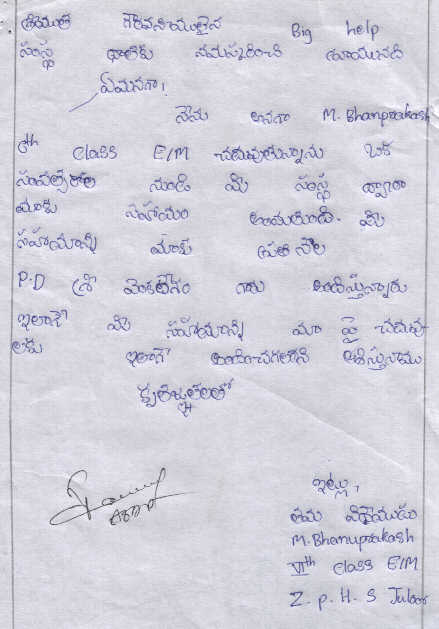 శ్రీయుత గౌరవనీయులైన Big help
సంస్థ వారికి నమస్కరించి వ్రాయునది
ఏమనగా!
నేను అనగా M. Bhanuprakash
6th Class E/M చదువుతున్నాను ఒక
సంవత్సరం నుండి మీ సంస్థ ద్వారా
మాకు సహాయం అందుతుంది. మీ
సహాయాన్ని మాకు ప్రతి నెల
P.D శ్రీ గారు అందిస్తున్నారు
ఇలాగే మీ సహాయాన్ని మా పై చదువు
లకు ఇలాగే అందించగలరని ఆశిస్తున్నాము
కృతజ్ఞతలతో
ఇట్లు,
తమ విధేయుడు
M. Bhanuprakash
VIth Class E/M
Z. P. H. S